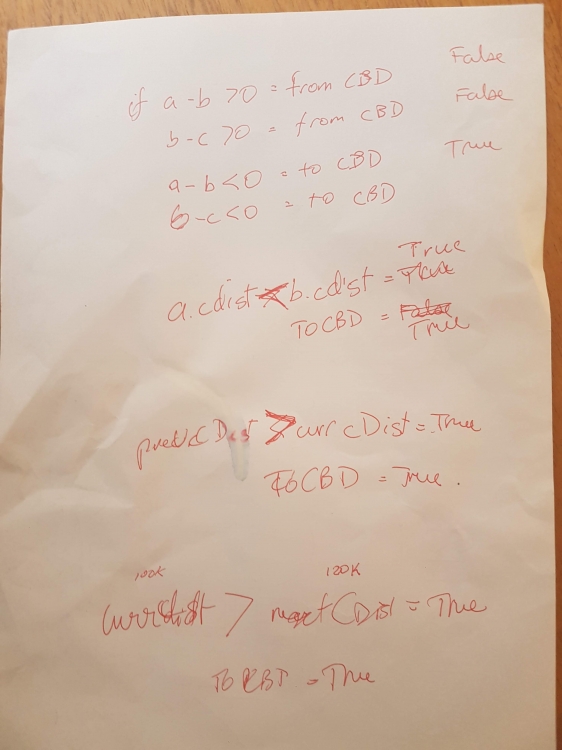 False
if a-b >0 = from CBD
False
b-c >0 = from CBD
True
a-b<0 = to CBD
b-c<0 = to CBD
True
a.cdist < b.cdist =
TOCBD = False
True
cDist > curr cDist = True
TOCBD = True.
100K 120K
currdist > next CDist = True
TO CBT = True